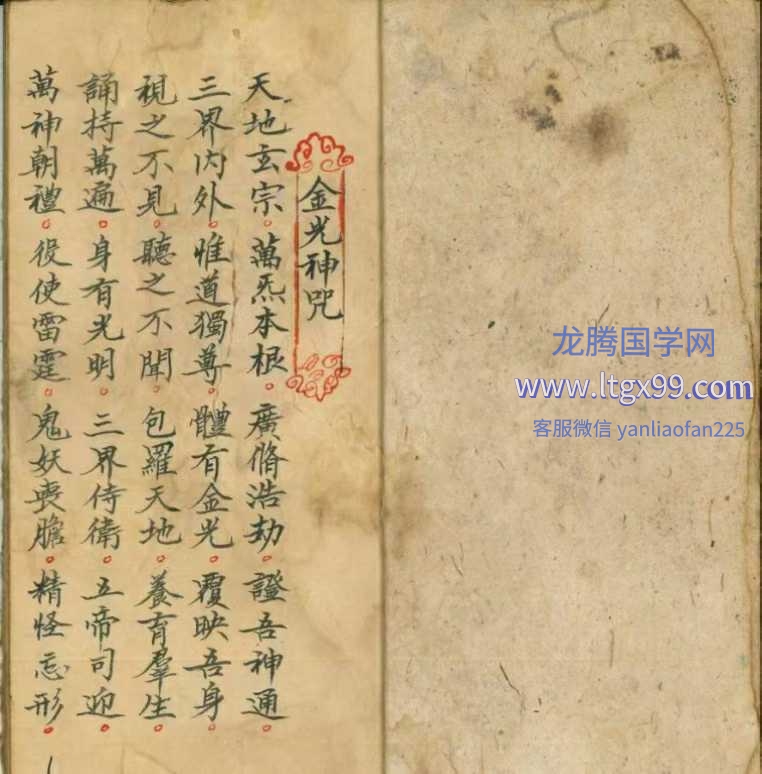 金光神咒
天地玄宗。萬炁本根。廣脩浩劫。證吾神通。
三界內外。惟道獨尊。體有金光。覆映吾身。
視之不見。聽之不聞。包羅天地。養育羣生。
誦持萬遍。身有光明。三界侍衛。五帝司迎。
萬神朝禮。役使雷霆。鬼妖喪膽。精怪忘形。
龙腾国学网
www.ltgx99.com
客服微信 yanliaofan225